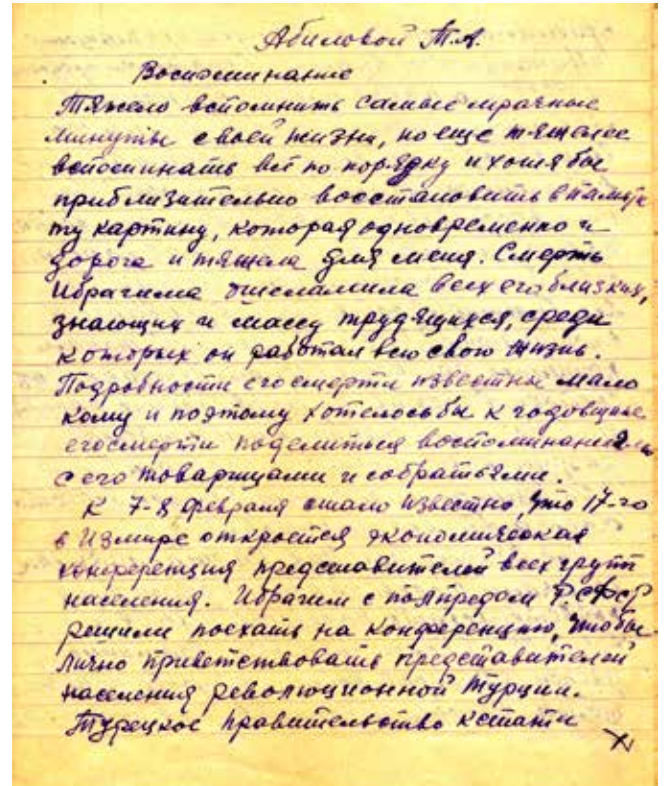 Абиловой Т.А.
Воспоминание
Тяжело вспомнить самые мрачные
минуты своей жизни, но еще тяжелее
вспоминать всё по порядку и хотя бы
приблизительно восстановить в памяти
ту картину, которая одновременно и
дорога и тяжела для меня. Смерть
Ибрагима ошеломила всех его близких,
знающих и массу трудящихся, среди
которых он работал всю свою жизнь.
Подробности его смерти известны мало
кому и поэтому хотелось бы к годовщине
его смерти поделиться воспоминаниями
с его товарищами и собратьями.
К 7-8 февраля стало известно, что 17-го
в Измире откроется экономическая
конференция представителей всех групп
населения. Ибрагим с полпредом РСФСР
решили поехать на конференцию, чтобы
лично приветствовать представителей
населения революционной Турции.
Турецкое правительство кстати